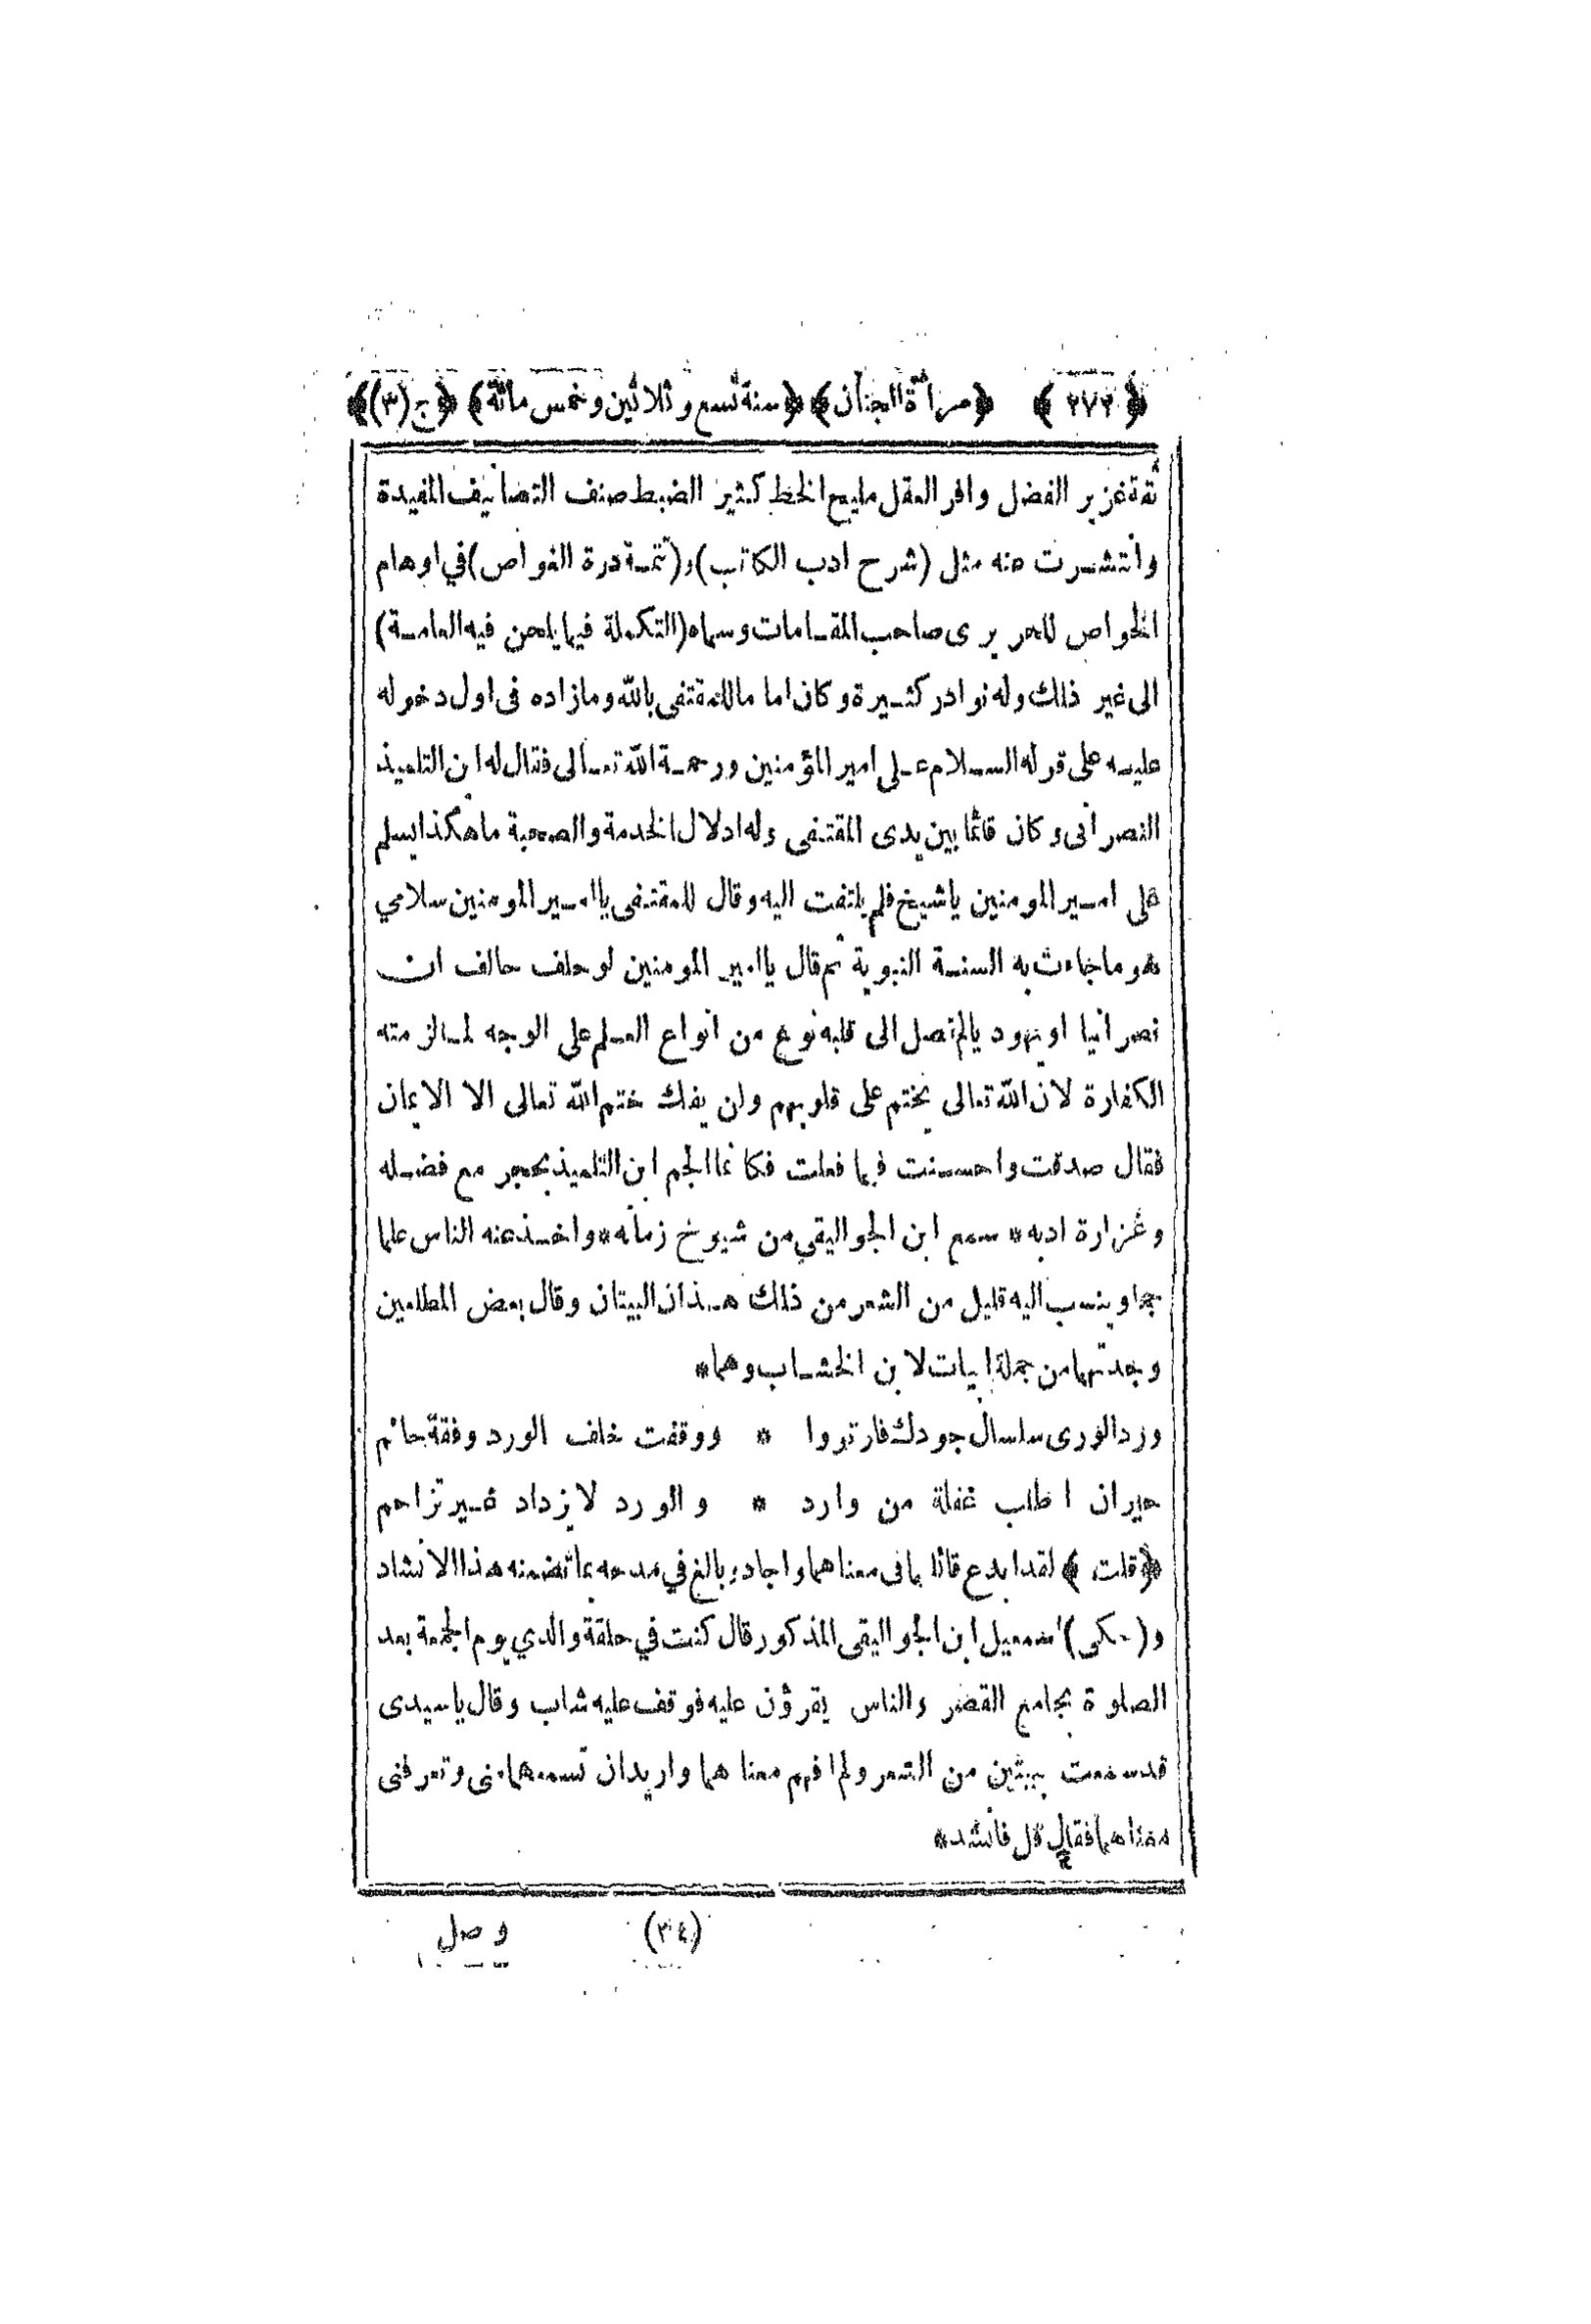 ﴿ ٢٧٢ ﴾ ﴿مرآة الجنان﴾ ﴿سنة تسع وثلاثين وخمس مائة﴾ ﴿ج (٣)﴾
ثقة غزير الفضل وافر العقل مليح الخط كثير الضبط صنف التصانيف المفيدة
وانتشرت عنه مثل (شرح ادب الكاتب) و(تتمة درة الغواص) في اوهام
الخواص للحريرى صاحب المقامات وسماه (التكملة فيما يلحن فيه العامة)
الى غير ذلك وله نوادر كثيرة وكان اماما للمقتفى بالله وما زاده فى اول دخوله
عليه على قوله السلام على امير المؤمنين ورحمة الله تعالى فقال له ابن التلميذ
النصرانى وكان قائما بين يدى المقتفى وله ادلال الخدمة والصحبة ما هكذا يسلم
على امير المومنين ياشيخ فلم يلتفت اليه وقال للمقتفى ياامير المومنين سلامي
هو ما جاءت به السنة النبوية ثم قال ياامير المومنين لو حلف حالف ان
نصرانيا او يهوديا لم تصل الى قلبه نوع من انواع العلم على الوجه لما لزمته
الكفارة لان الله تعالى يختم على قلوبهم ولن يفك ختم الله تعالى الا الايمان
فقال صدقت واحسنت فيما فعلت فكانما الجم ابن التلميذ بحجر مع فضله
وغزارة ادبه* سمع ابن الجواليقي من شيوخ زمانه* واخذ عنه الناس علما
جما وينسب اليه قليل من الشعر من ذلك هذان البيتان وقال بعض المطلعين
وجدتهما من جملة ابيات لابن الخشاب وهما*
ورد الورى سلسال جودك فارتووا * ووقفت خلف الورد وقفة حائم
حيران اطلب غفلة من وارد * والورد لا يزداد غير تزاحم
﴿وقلت ﴾ لقد ابدع قائلا بما فى معناهما واجاد وبالغ في مدحه بما تضمنه هذا الانشاد
و(حكى) اسمعيل ابن الجواليقى المذكور قال كنت في حلقة والدي يوم الجمعة بعد
الصلوة بجامع القصر والناس يقرؤن عليه فوقف عليه شاب وقال ياسيدى
قد سمعت بيتين من الشعر ولم افهم معناهما واريد ان تسمعهما منى وتعرفنى
معناهما فقال قل فانشد*
(٣٤)
وصل